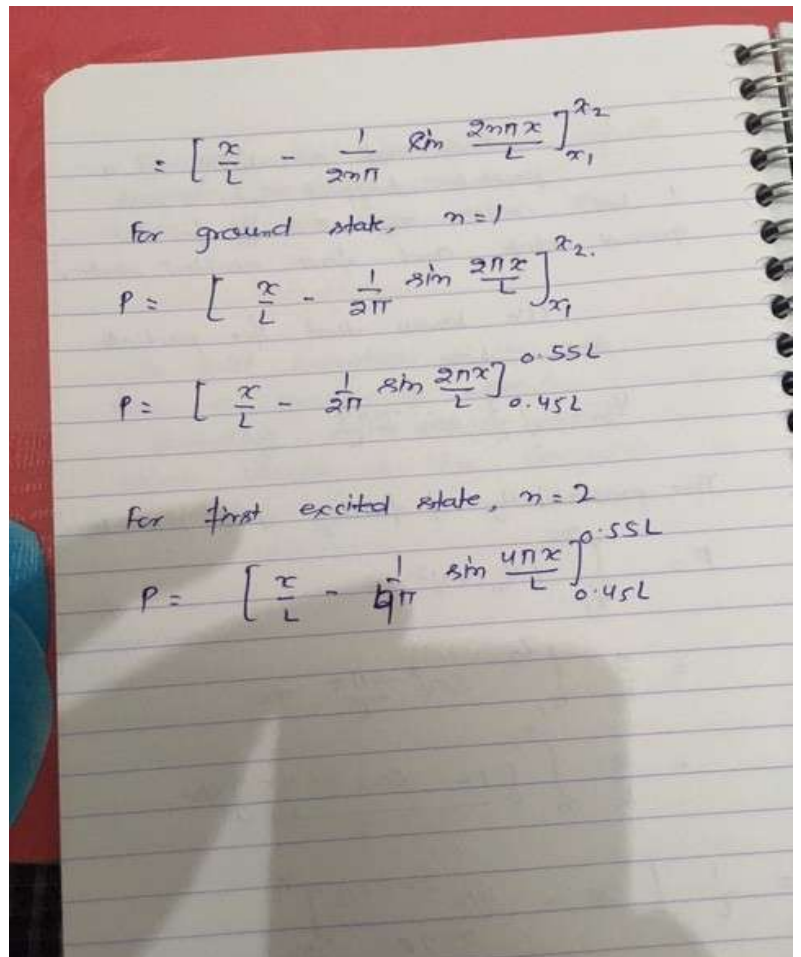 = [ x/L - 1/2nπ sin 2nπx/L ]x₁^x₂
For ground state, n=1
P = [ x/L - 1/2π sin 2πx/L ]x₁^x₂.
P = [ x/L - 1/2π sin 2πx/L ]0.45L^0.55L
For first excited state, n=2
P = [ x/L - 1/4π sin 4πx/L ]0.45L^0.55L